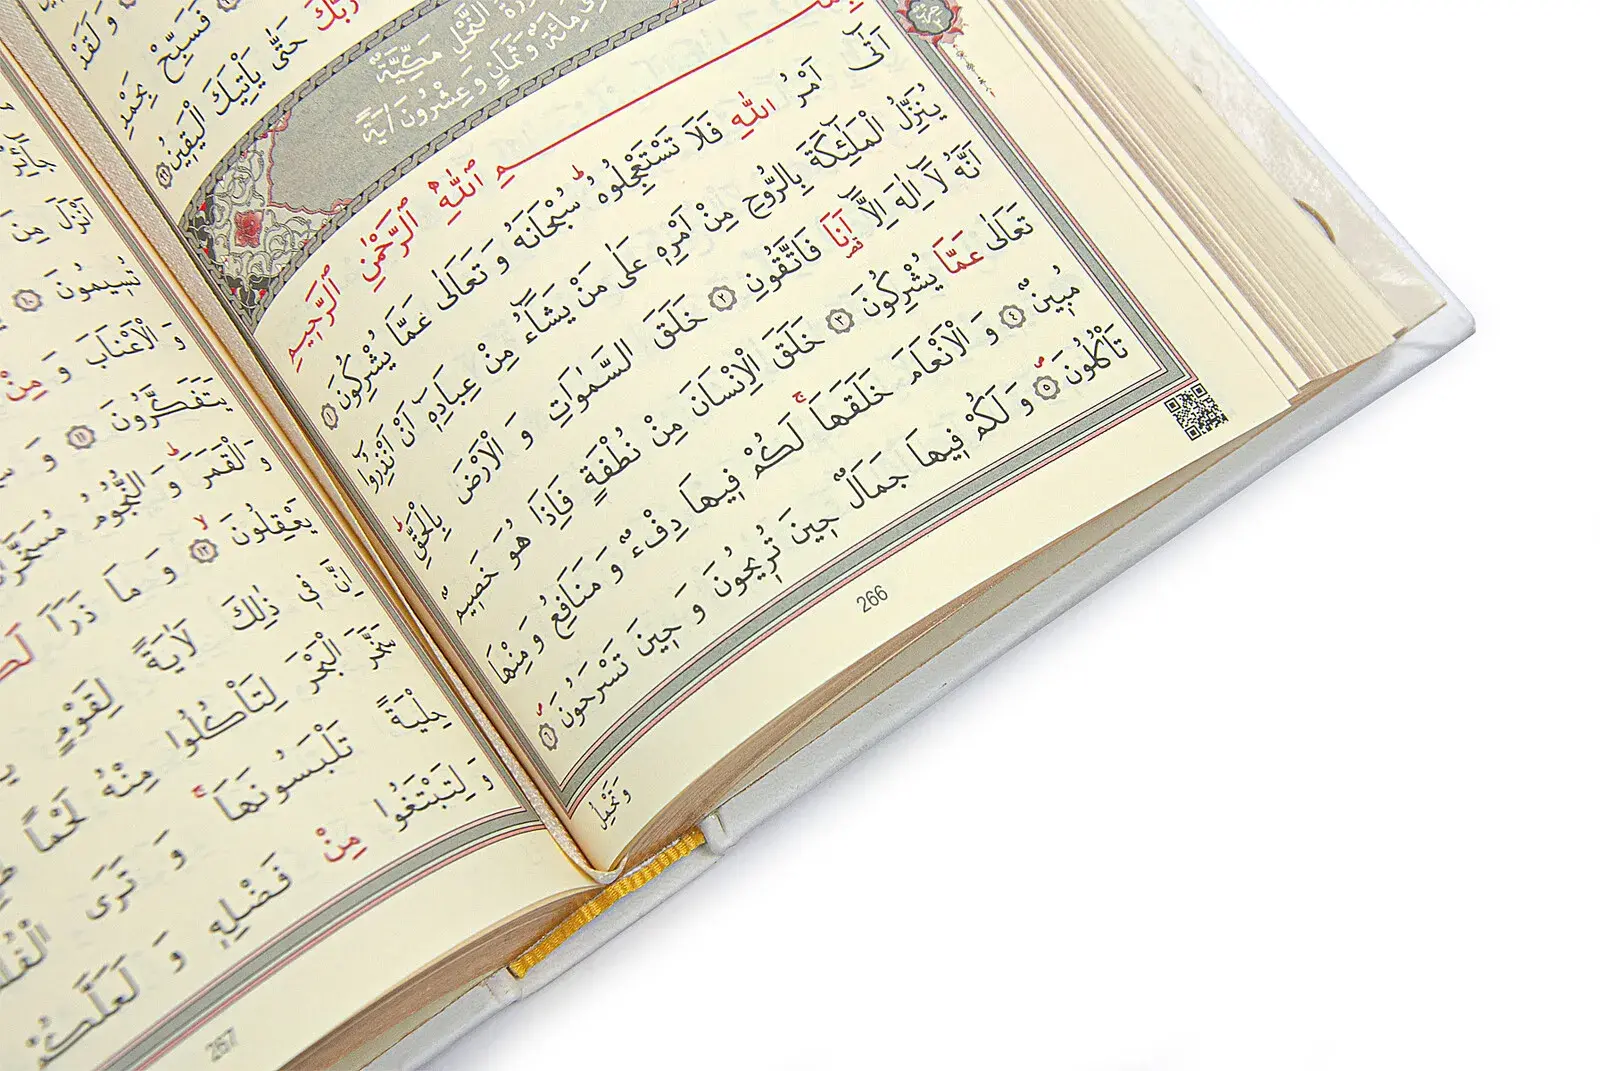 وَ لَقَدْ
فَسَبِّحْ بِحَمْدِ
رَبَّكَ حَتّٰى يَأْتِيَكَ الْيَقِينُ ٩٩
سُورَةُ النَّحْلِ مَكِّيَّةٌ
مِائَةٌ وَثَمَانٍ وَ عِشْرُونَ اٰيَةً
بِسْمِ اللّٰهِ الرَّحْمٰنِ الرَّحِيمِ
اَتٰٓى اَمْرُ اللّٰهِ فَلَا تَسْتَعْجِلُوهُ ط سُبْحَانَهُ وَ تَعَالٰى عَمَّا يُشْرِكُونَ ١
يُنَزِّلُ الْمَلٰٓئِكَةَ بِالرُّوحِ مِنْ اَمْرِهٖ عَلٰى مَنْ يَشَٓاءُ مِنْ عِبَادِهٖٓ اَنْ اَنْذِرُٓوا
اَنَّهُ لَٓا اِلٰهَ اِلَّٓا اَنَا فَاتَّقُونِ ٢ خَلَقَ السَّمٰوَاتِ وَ الْاَرْضَ بِالْحَقِّ ط
تَعَالٰى عَمَّا يُشْرِكُونَ ٣ خَلَقَ الْاِنْسَانَ مِنْ نُطْفَةٍ فَاِذَا هُوَ خَصِيمٌ
مُبِينٌ ٤ وَ الْاَنْعَامَ خَلَقَهَا ج لَكُمْ فِيهَا دِفْءٌ وَ مَنَافِعُ وَ مِنْهَا
تَأْكُلُونَ ص ٥ وَ لَكُمْ فِيهَا جَمَالٌ حِينَ تُرِيحُونَ وَ حِينَ تَسْرَحُونَ ص ٦
وَ تَحْمِلُ
266
اَنْزَلَ مِنَ
تُسِيمُونَ ١٠
وَ الْاَعْنَابَ وَ مِنْ
يَتَفَكَّرُونَ ١١ وَ
وَ الْقَمَرَ ط وَ النُّجُومُ مُسَخَّرَاتٌ
يَعْقِلُونَ لا ١٢ وَ مَا ذَرَاَ لَكُمْ
اِنَّ فِي ذٰلِكَ لَاٰيَةً لِقَوْمٍ
سَخَّرَ الْبَحْرَ لِتَأْكُلُوا مِنْهُ لَحْمًا
حِلْيَةً تَلْبَسُونَهَا ج وَ تَرَى الْفُلْكَ
وَ لِتَبْتَغُوا مِنْ فَضْلِهٖ وَ لَعَلَّكُمْ
267